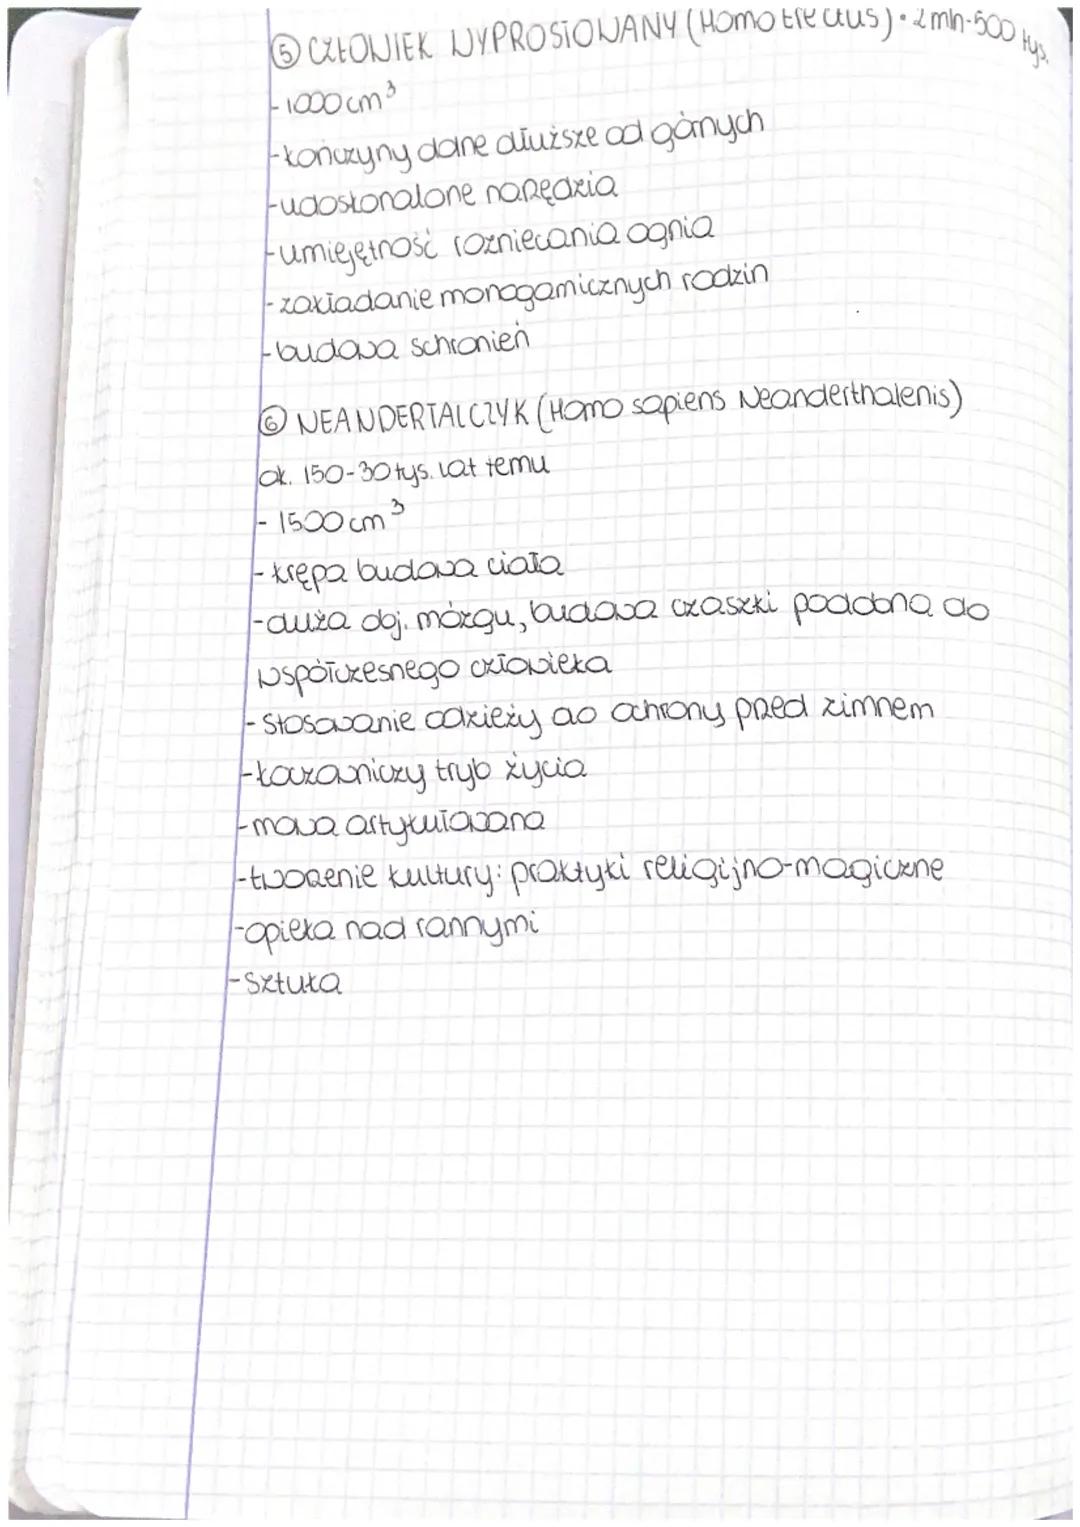 ⑤ CZŁOWIEK WYPROSTOWANY (Homo Erectus) • 2 mln-500 tys.
- 1000 cm³
- kończyny dolne dłuższe od górnych
- udoskonalone narzędzia
- umiejętność rozniecania ognia
- zakładanie monogamicznych rodzin
- budowa schronień
⑥ NEANDERTALCZYK (Homo sapiens Neanderthalenis)
ok. 150-30 tys. lat temu
- 1500 cm³
- krępa budowa ciała
- duża obj. mózgu, budowa czaszki podobna do
współczesnego człowieka
- stosowanie odzieży do ochrony przed zimnem
- koczowniczy tryb życia
- mowa artykułowana
- tworzenie kultury: praktyki religijno-magiczne
- opieka nad rannymi
- sztuka